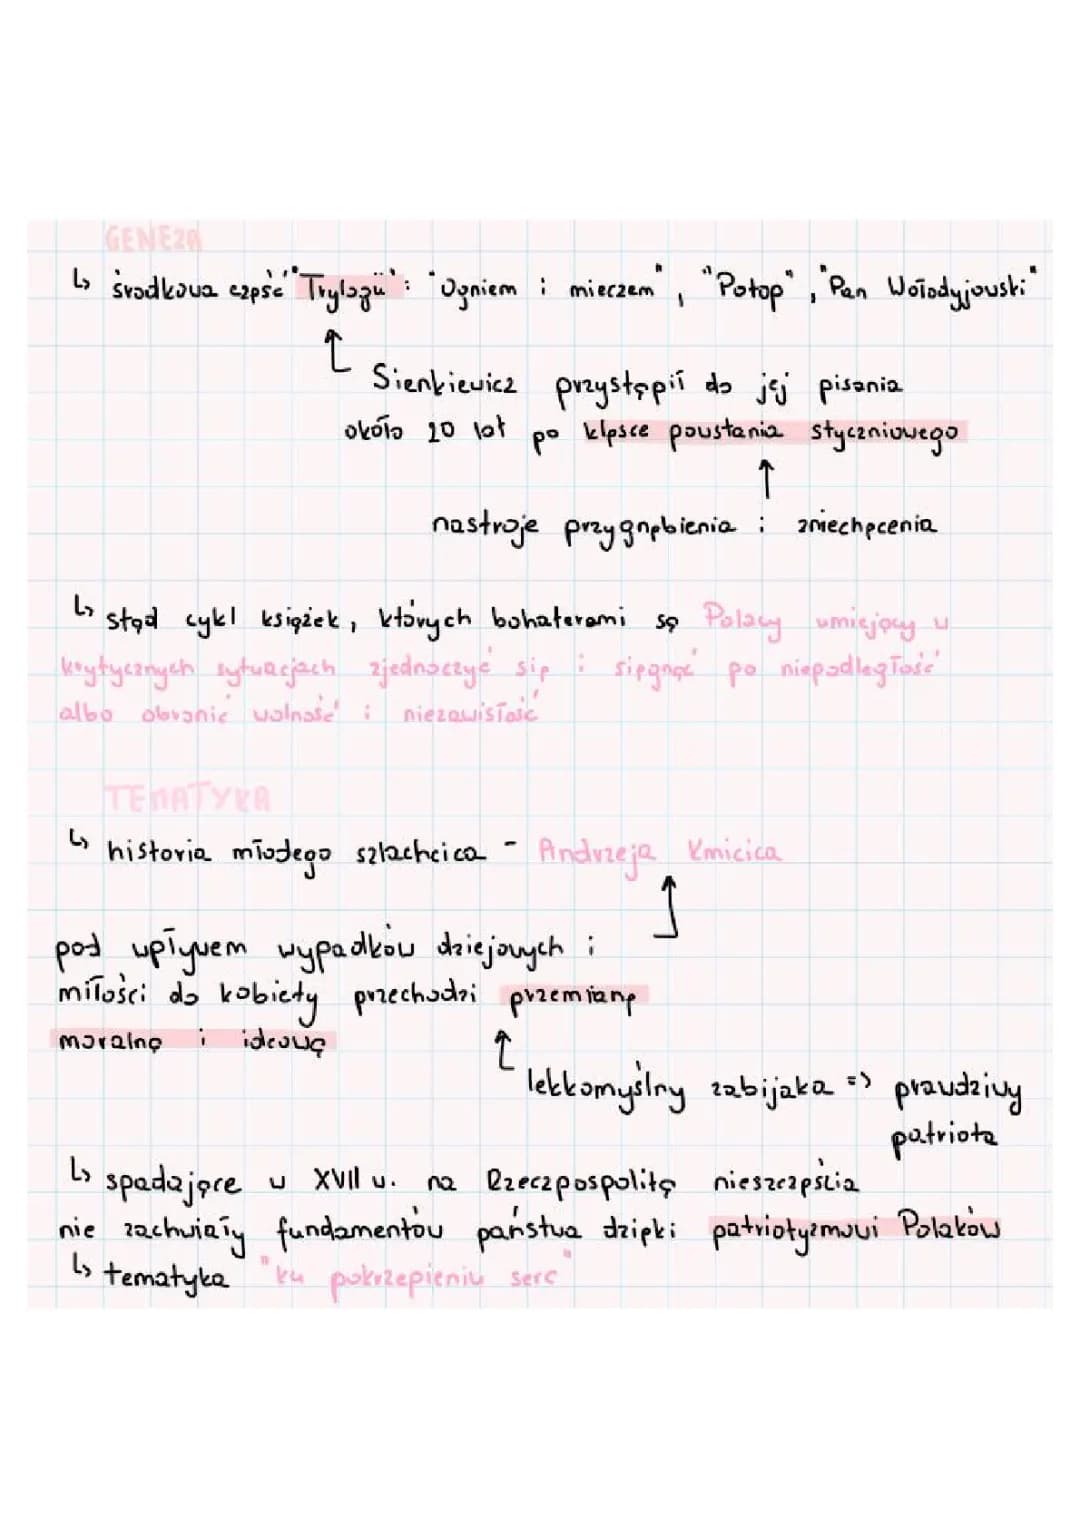 GENEZA
↳ środkowa część "Trylogii": "Ogniem i mieczem", "Potop", "Pan Wołodyjowski"
Sienkiewicz przystąpił do jej pisania
około 20 lat po klęsce powstania styczniowego
nastroje przygnębienia i zniechęcenia
↳ stąd cykl książek, których bohaterami są Polacy umiejący w
krytycznych sytuacjach zjednoczyć się i sięgnąć po niepodległość
albo obronić wolność i niezawisłość
TEMATYKA
↳ historia młodego szlachcica - Andrzeja Kmicica
pod wpływem wypadków dziejowych i
miłości do kobiety przechodzi przemianę
moralną i ideową
lekkomyślny zabijaka => prawdziwy
patriota
↳ spadające w XVII w. na Rzeczpospolitą nieszczęścia
nie zachwiały fundamentów państwa dzięki patriotyzmowi Polaków
↳ tematyka "ku pokrzepieniu serc"